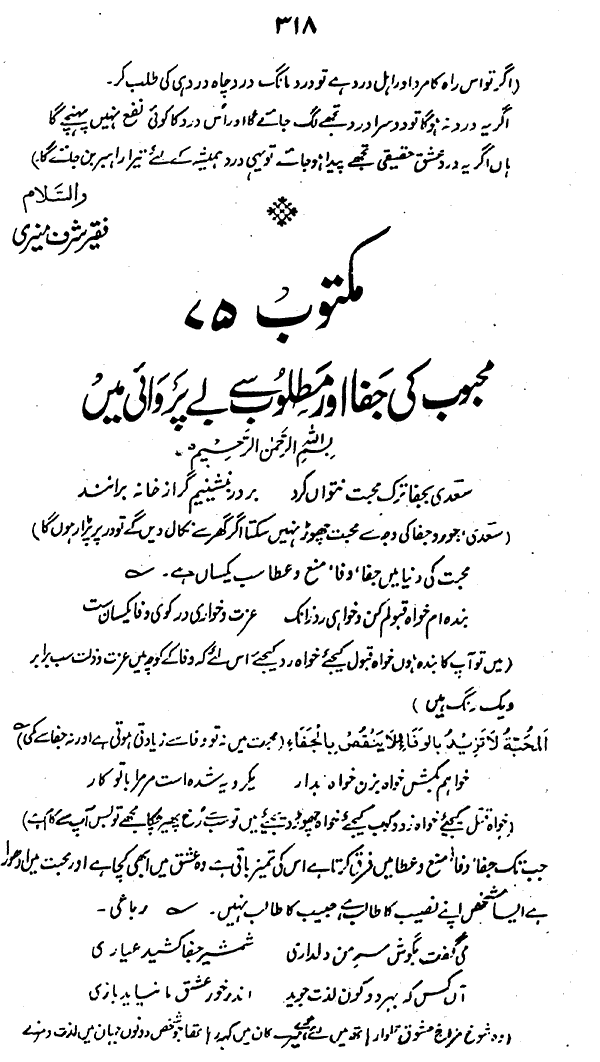 ۳۱۸
(اگر تو اس راہ کا مرد اور اہل درد ہے تو درد مانگ درد چاہ درد ہی کی طلب کر۔
اگر یہ درد نہ ہوگا تو دوسرا درد تجھے لگ جائے گا اور اُس درد کا کوئی نفع نہیں پہنچے گا
ہاں اگر یہ درد عشق حقیقی تجھے پیدا ہو جائے تو یہی درد ہمیشہ کے لئے تیرا راہبر بن جائے گا۔)
والسّلام
فقیر شرف منیری
مکتوب ۷۵
محبوب کی جفا اور مطلوب سے بے پروائی میں
بِسْمِ اللّٰہِ الرَّحْمٰنِ الرَّحِیْمِ
سعدی بجفا ترک محبت نتواں کرد بر در بنشینیم گر از خانہ برانند
(سعدی، جور و جفا کی وجہ سے محبت چھوڑ نہیں سکتا اگر گھر سے نکال دیں گے تو در پر پڑا رہوں گا)
محبت کی دنیا میں جفا، وفا، منع و عطا سب یکساں ہے۔ ؎
بندہ ام خواہ قبولم کن و خواہی رد زانک عزت و خواری در کوی وفا یکسان ست
(میں تو آپ کا بندہ ہوں خواہ قبول کیجئے خواہ رد کیجئے اس لئے کہ وفا کے کوچہ میں عزت و ذلت سب برابر
و یک رنگ ہیں)
اَلْمَحَبَّۃُ لَا تَزِیْدُ بِالْوَفَاءِ وَلَا یَنْقُصُ بِالْجَفَاءِ (محبت میں نہ تو وفا سے زیادتی ہوتی ہے اور نہ جفا سے کمی) ؎
خواہم بکش خواہ بزن خواہ بدار یکرویہ شدہ است مرمرا با تو کار
(خواہ قتل کیجئے خواہ زدوکوب کیجئے خواہ چھوڑ دیجئے میں تو سب سے رُخ پھیر چکا مجھے تو بس آپ سے کام ہے)
جب تک جفا، وفا، منع و عطا میں فرق کرتا ہے اس کی تمیز باقی ہے وہ عشق میں ابھی کچا ہے اور محبت میں ادھورا
ہے ایسا شخص اپنے نصیب کا طالب ہے حبیب کا طالب نہیں۔ ؎ رباعی۔
می گفت بگوش سر من دلداری شمشیر جفا کشید عیاری
آں کس کہ بہر دو کون لذت جوید اندر خور عشق ما نیاید باری
(وہ شوخ مزاج معشوق تلوار ہاتھ میں لئے میرے کان میں کہہ رہا تھا جو شخص دونوں جہان میں لذت